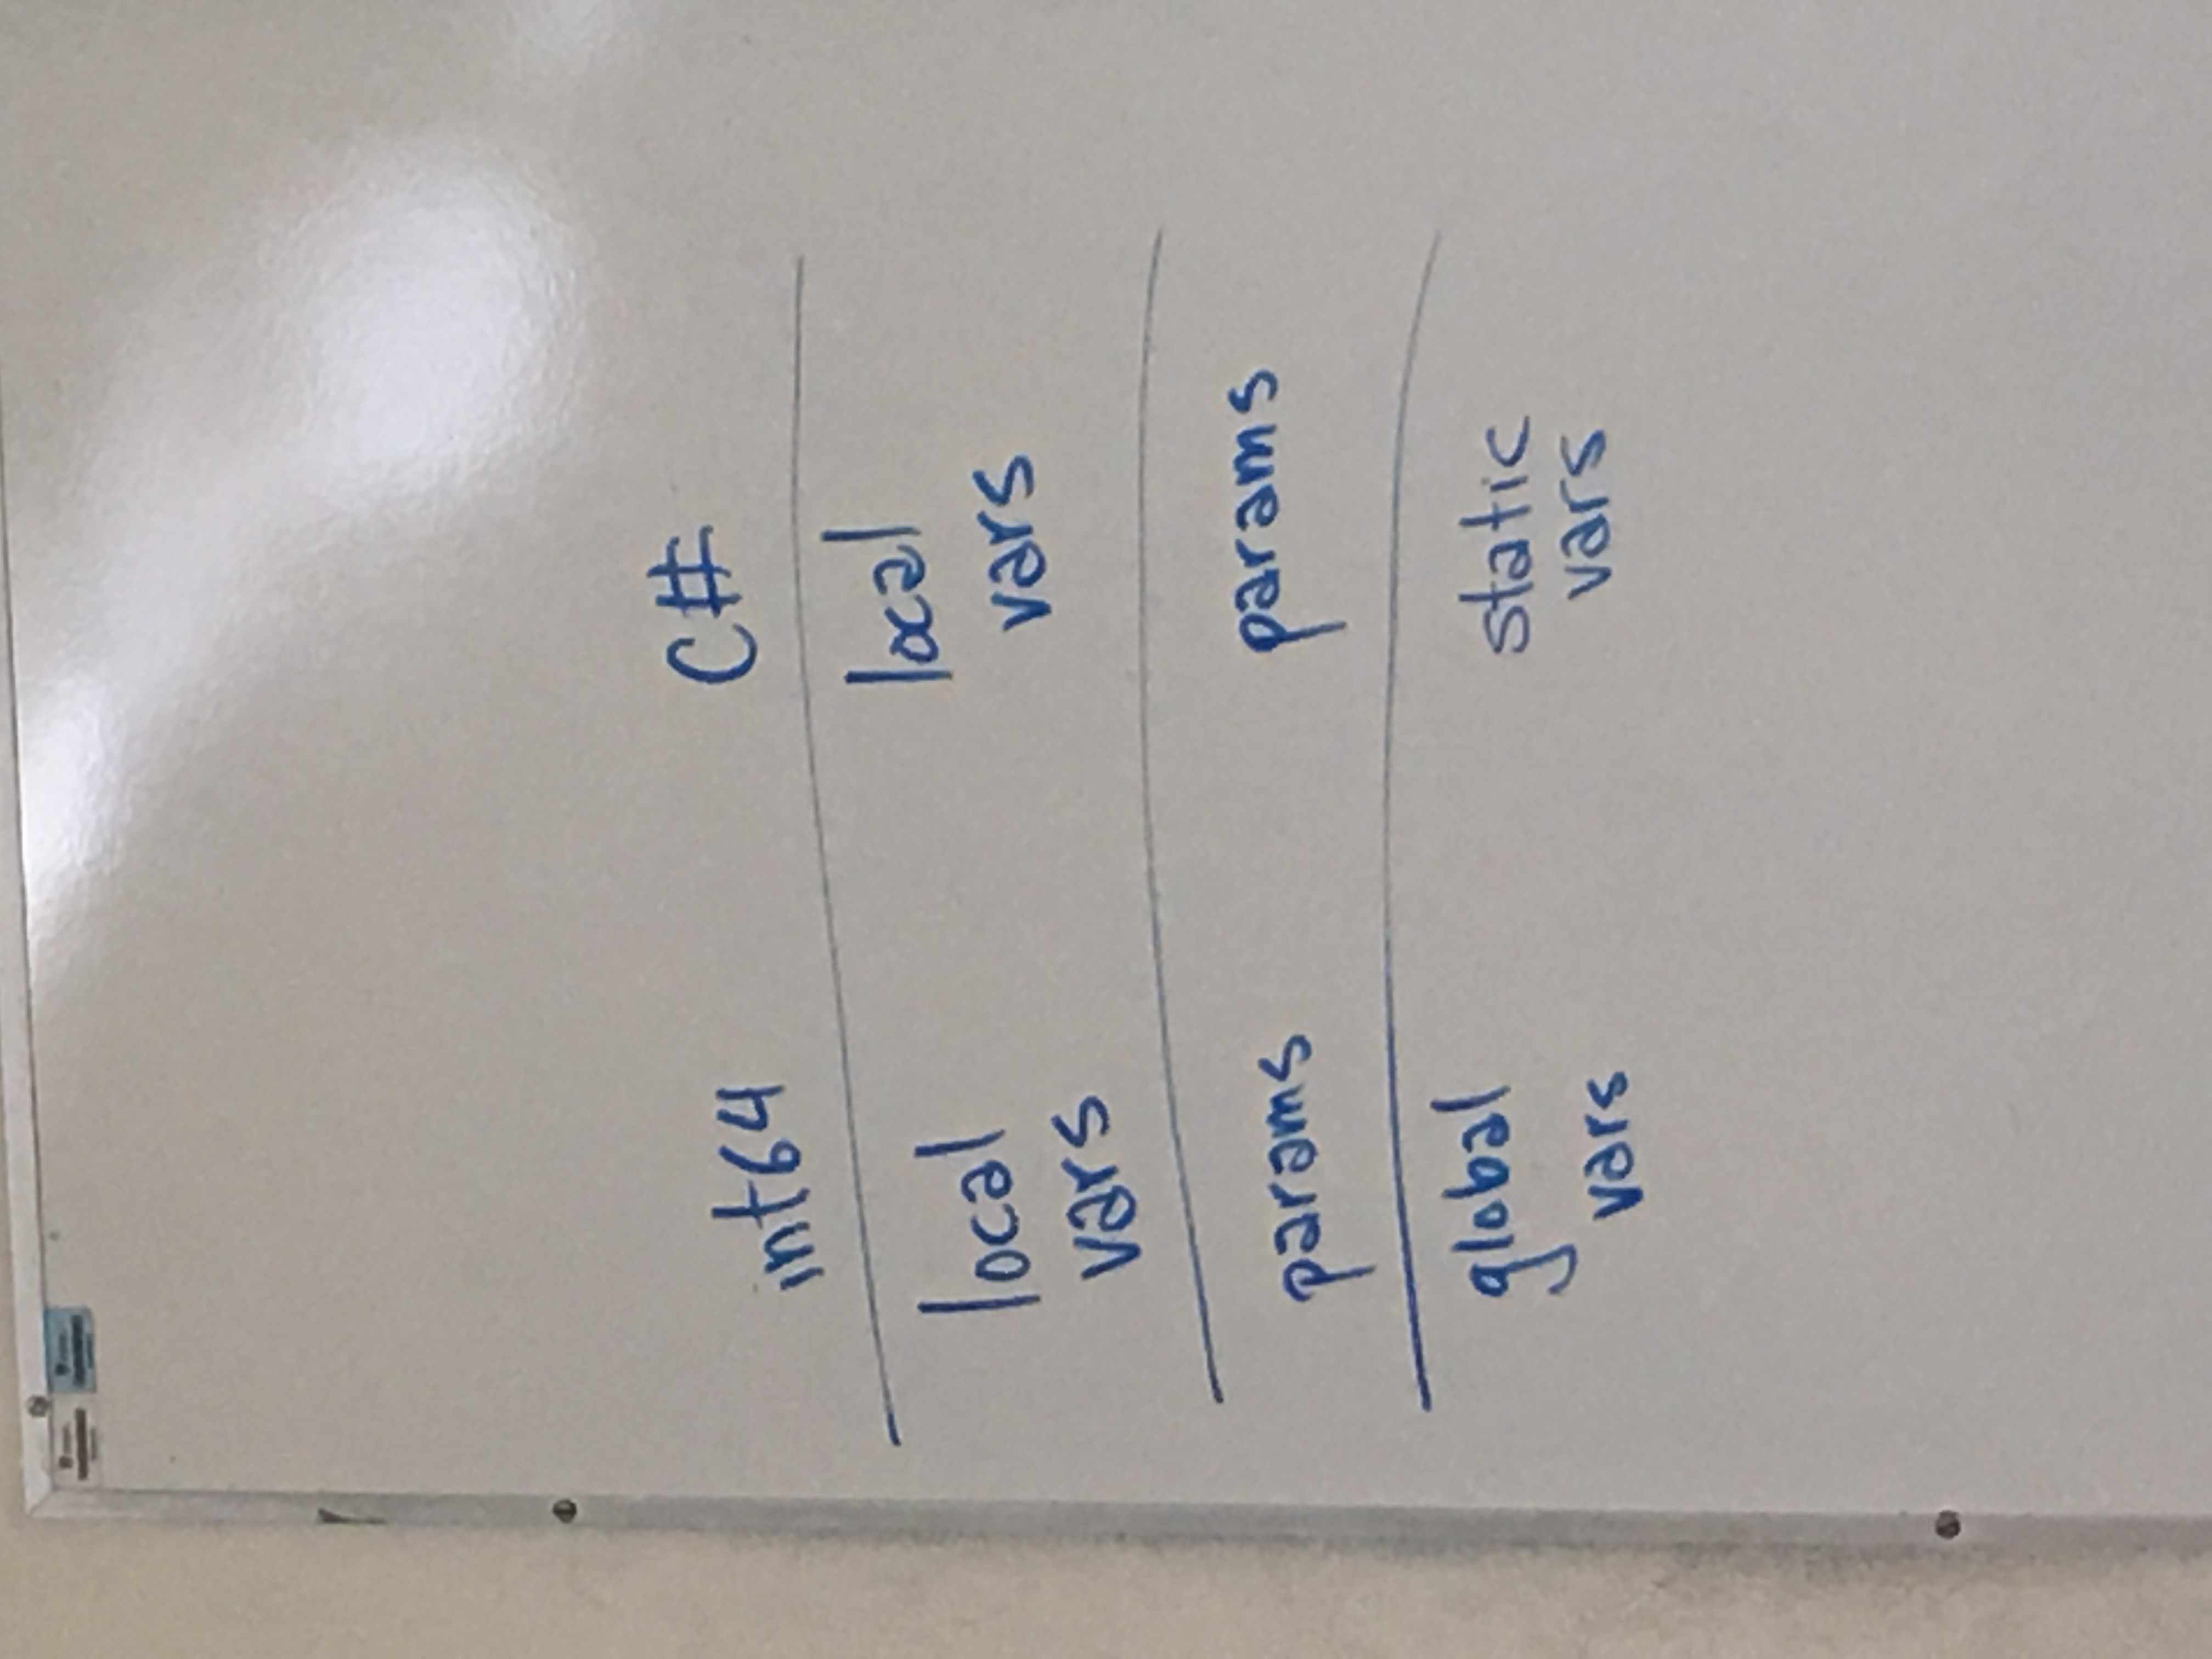 int64 C#
local vars local vars
params params
global vars static vars